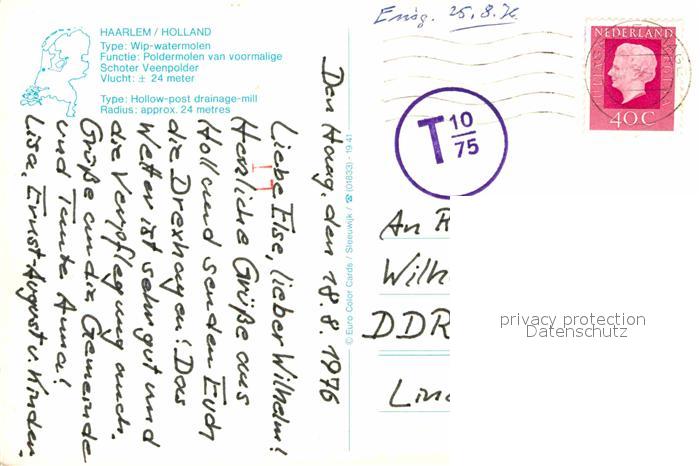 HAARLEM / HOLLAND
Type: Wip-watermolen
Functie: Poldermolen van voormalige
Schoter Veenpolder
Vlucht: ± 24 meter
Type: Hollow-post drainage-mill
Radius: approx. 24 metres
Den Haag, den 18.8.1976
Liebe Else, lieber Wilhelm!
Herzliche Grüße aus
Holland senden Euch
die Drexhagen! Das
Wetter ist sehr gut und
die Verpflegung auch.
Grüße an die Gemeinde
und Tante Anna!
Lisa, Ernst-August u. Kinder.
© Euro Color Cards / Sleeuwijk / ☎ (01833) - 19 41
Eing. 25.8.76
NEDERLAND
40 C
T 10/75
An
Wilh
DDR
privacy protection
Datenschutz